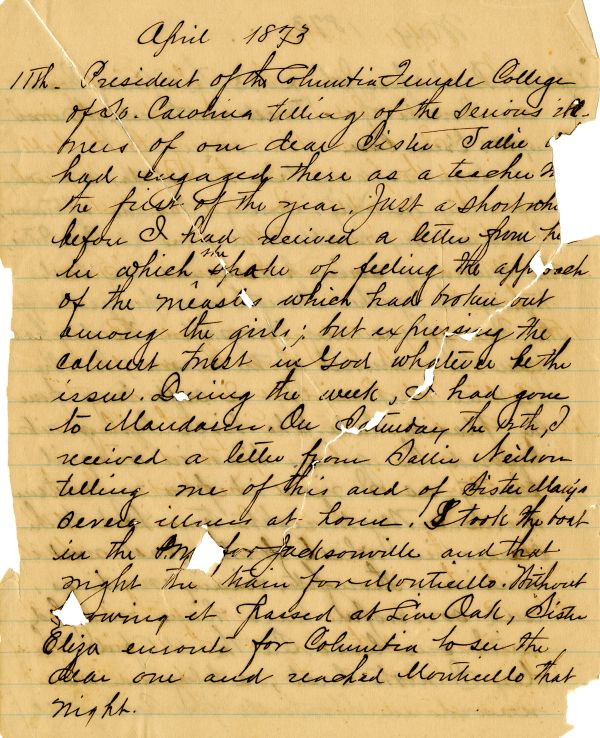 April 1873
11th. President of the Columbia Temale College
of So. Carolina telling of the serious ill-
ness of our dear Sister Sallie
had engaged there as a teacher
the first of the year. Just a short
before I had received a letter from he
in which she spake of feeling the approach
of the measles which had broken out
among the girls; but expressing the
calmest trust in God whatever be the
issue. During the week, I had gone
to Mandarin. On Saturday, the I
received a letter from Sallie Neilson
telling me of this and of Sister Mary's
severe illness at home. I took the boat
in the for Jacksonville and that
night the train for Monticello. Without
owing it passed at Live Oak, Sister
Eliza enroute for Columbia to see the
dear one and reached Monticello that
night.